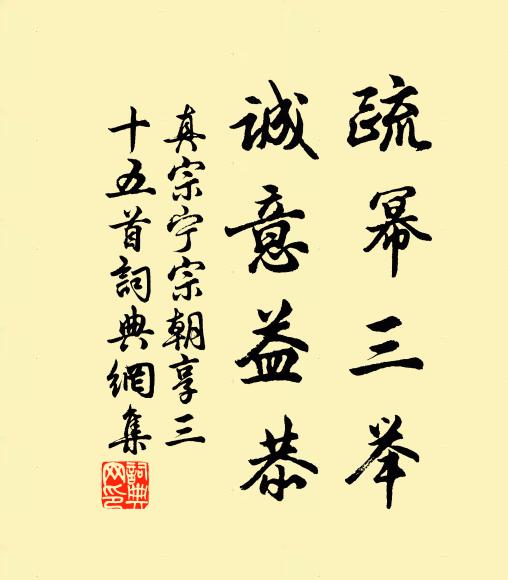 疏幂三举
誠意益恭
真宗宁宗朝享三
十五首詞典網集
詞典
网印